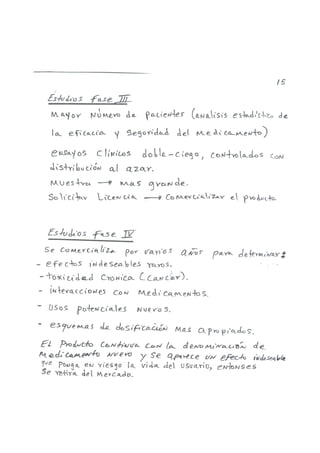 15
Estudios fase III
Mayor Número de pacientes (analisis estadistico de
la eficacia y Segoridad del Medicamento)
ensayos clinicos doble-ciego, controlados con
distribución al azar.
Muestra → mas grande.
Solicitar Licencia → Comercializar el producto.
Estudios fase IV
Se comercializa por varios años para determinar:
- efectos indeseables raros.
- toxicidad cronica (cancer).
- interacciones con medicamentos.
- Usos potenciales nuevos.
- esquemas de dosificación mas apropiados.
El Producto continua con la denominación de
Medicamento nuevo y se aparece un efecto indeseable
que ponga en riesgo la vida del usuario, entonses
se retira del mercado.